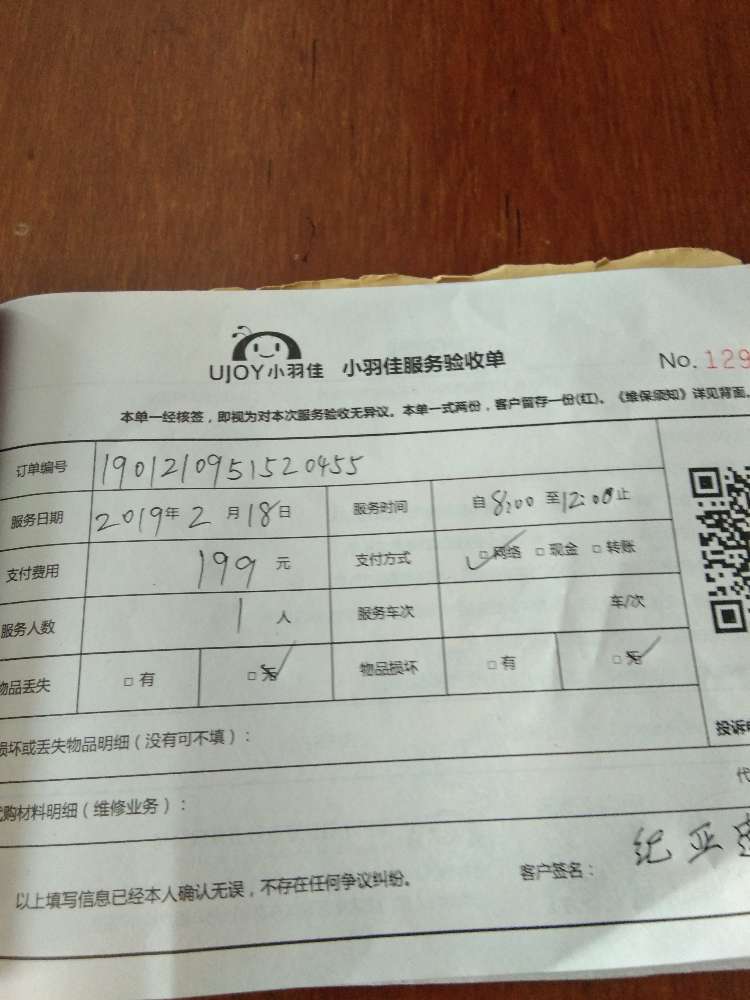 UJOY小羽佳 小羽佳服务验收单 No. 129
本单一经核签，即视为对本次服务验收无异议。本单一式两份，客户留存一份(红)。《维保须知》详见背面。
订单编号 1901210951520455
服务日期 2019年 2月 18日 服务时间 自8:00至12:00止
支付费用 199 元 支付方式 □网络 □现金 □转账
服务人数 1 人 服务车次 车/次
物品丢失 □有 □无 物品损坏 □有 □无
损坏或丢失物品明细（没有可不填）：
投诉
代购材料明细（维修业务）：
代
以上填写信息已经本人确认无误，不存在任何争议纠纷。 客户签名： 纪亚